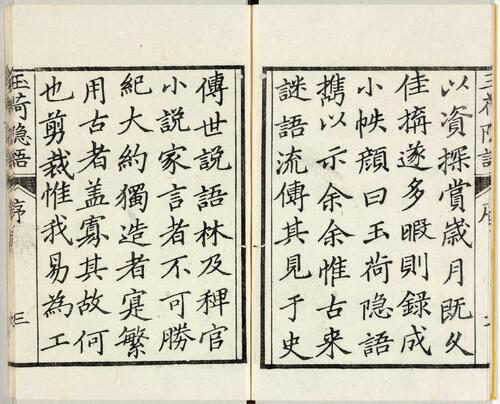 以資探賞歲月既久
佳搆遂多暇則錄成
小帙顏曰玉荷隱語
攜以示余余惟古來
謎語流傳其見于史
傳世說語林及稗官
小說家言者不可勝
紀大約獨造者寔繁
用古者盖寡其故何
也剪裁惟我易為工
玉荷隱語
序
三